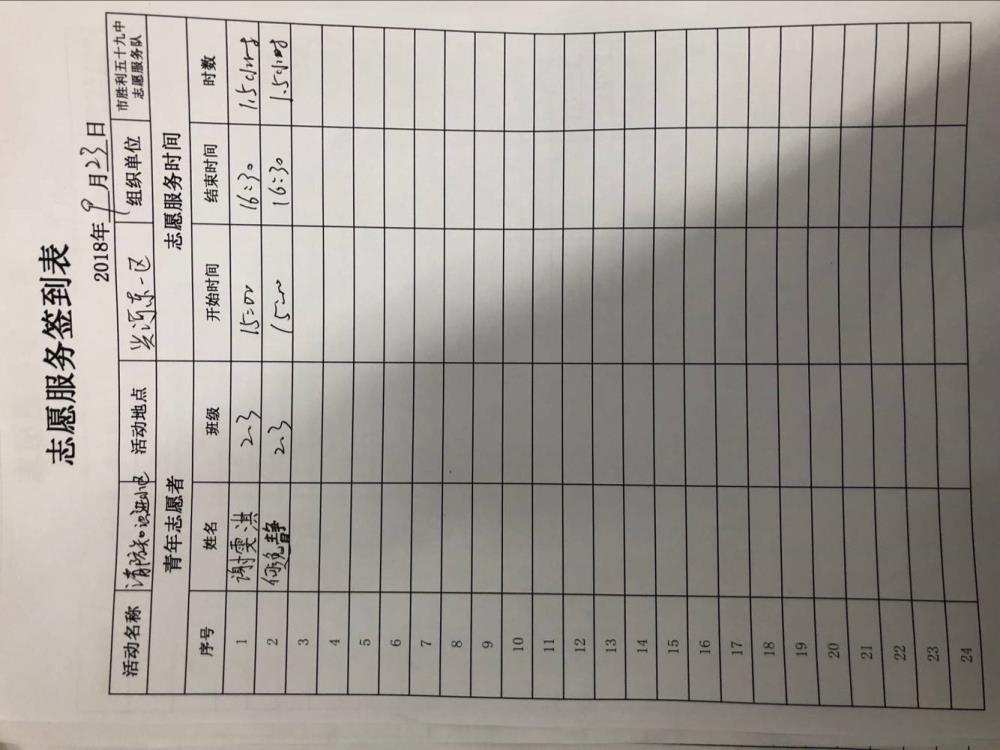 志愿服务签到表
2018年9月23日
活动名称 消防知识进小区 活动地点 兴河东一区 组织单位 市胜利五十九中志愿服务队
青年志愿者 志愿服务时间
序号 姓名 班级 开始时间 结束时间 时数
1 谢雯淇 2.3 15:00 16:30 1.5小时
2 2.3 15:00 16:30 1.5小时
3
4
5
6
7
8
9
10
11
12
13
14
15
16
17
18
19
20
21
22
23
24